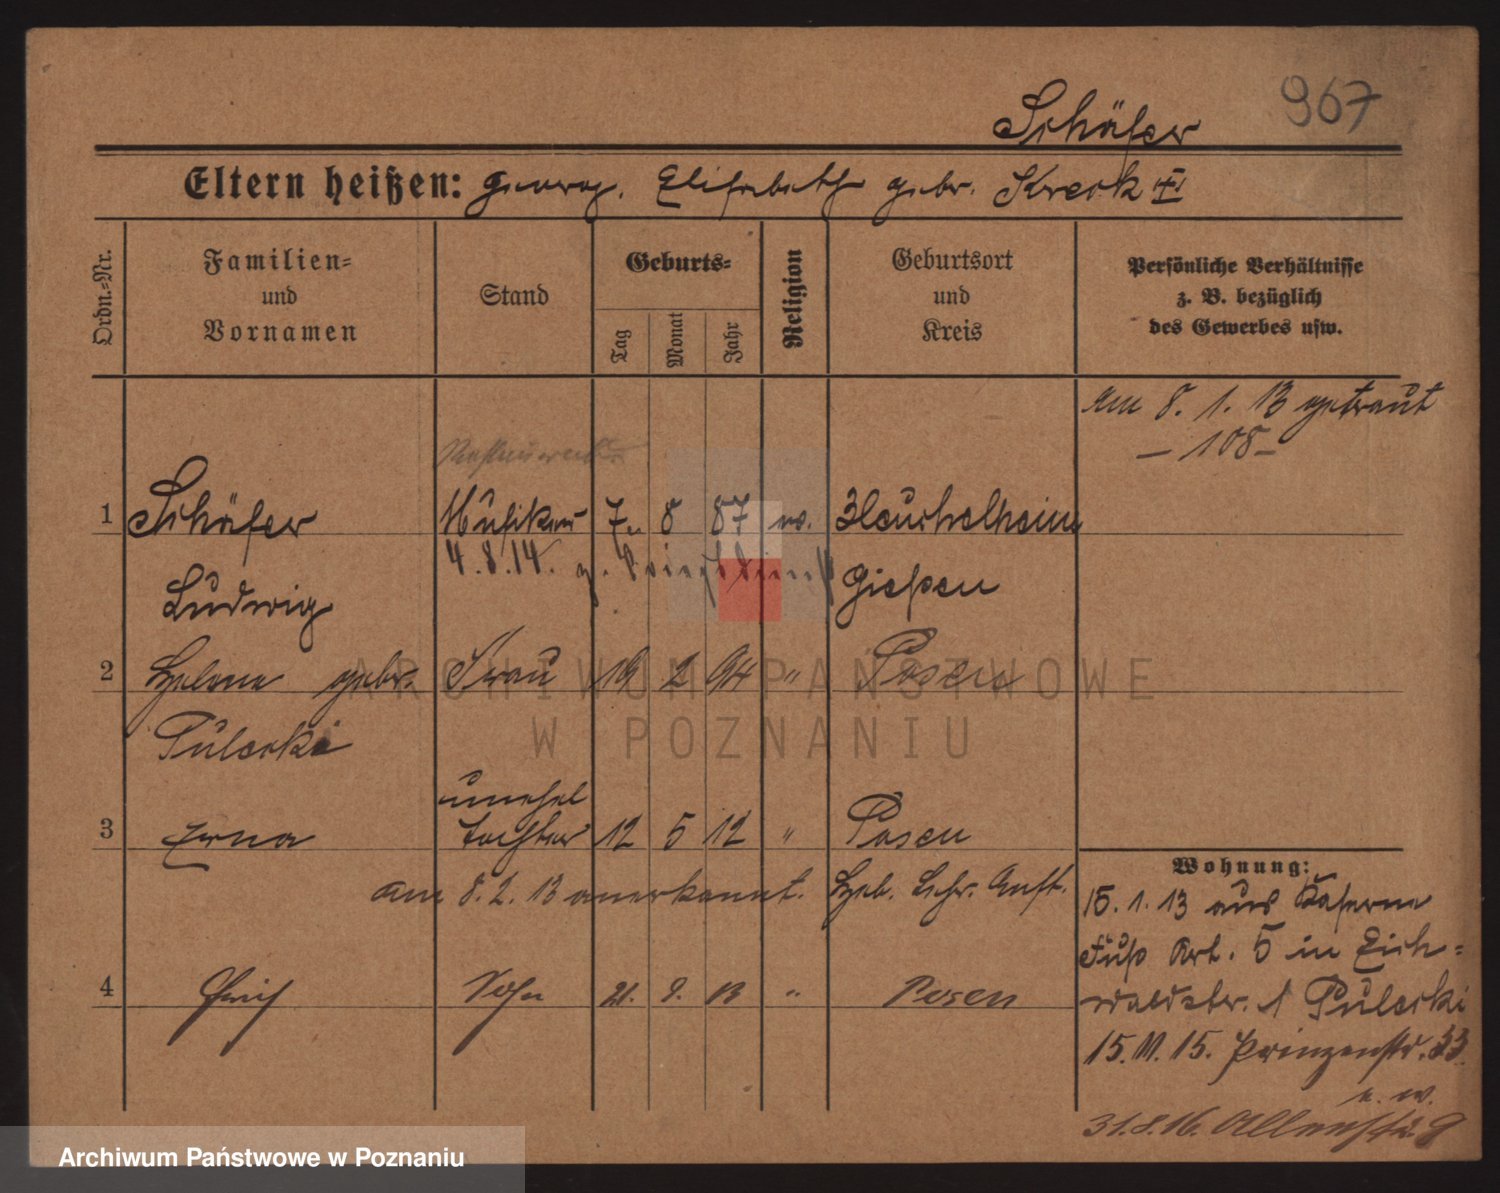 967
Schäfer
Eltern heißen: Georg. Elisabeth gebr. Kreck
Ordn.=Nr.
Familien=
und
Vornamen
Stand
Geburts=
Tag
Monat
Jahr
Religion
Geburtsort
und
Kreis
Persönliche Verhältnisse
z. B. bezüglich
des Gewerbes usw.
am 8. 1. 13 getraut
— 108 —
1 Schäfer Musiker 7. 8 87 ev. Heuchelheim
4.8.14. z.
Ludwig Gießen
2 Helene gebr. Frau 19 2 94 " Posen
Pulecki
unehel
3 Erna Tochter 12 5 12 " Posen
am 8. 2. 13 anerkannt. Heb. Lehr. Anst.
Wohnung:
15. 1. 13 aus Kaserne
Fuß Art. 5 in Eich=
waldstr. 1 Pulecki
4 Sohn 21. 9. 13 " Posen
15. 11. 15. Prinzenstr. 33
31.8.16.
ARCHIWUM PAŃSTWOWE
W POZNANIU
Archiwum Państwowe w Poznaniu